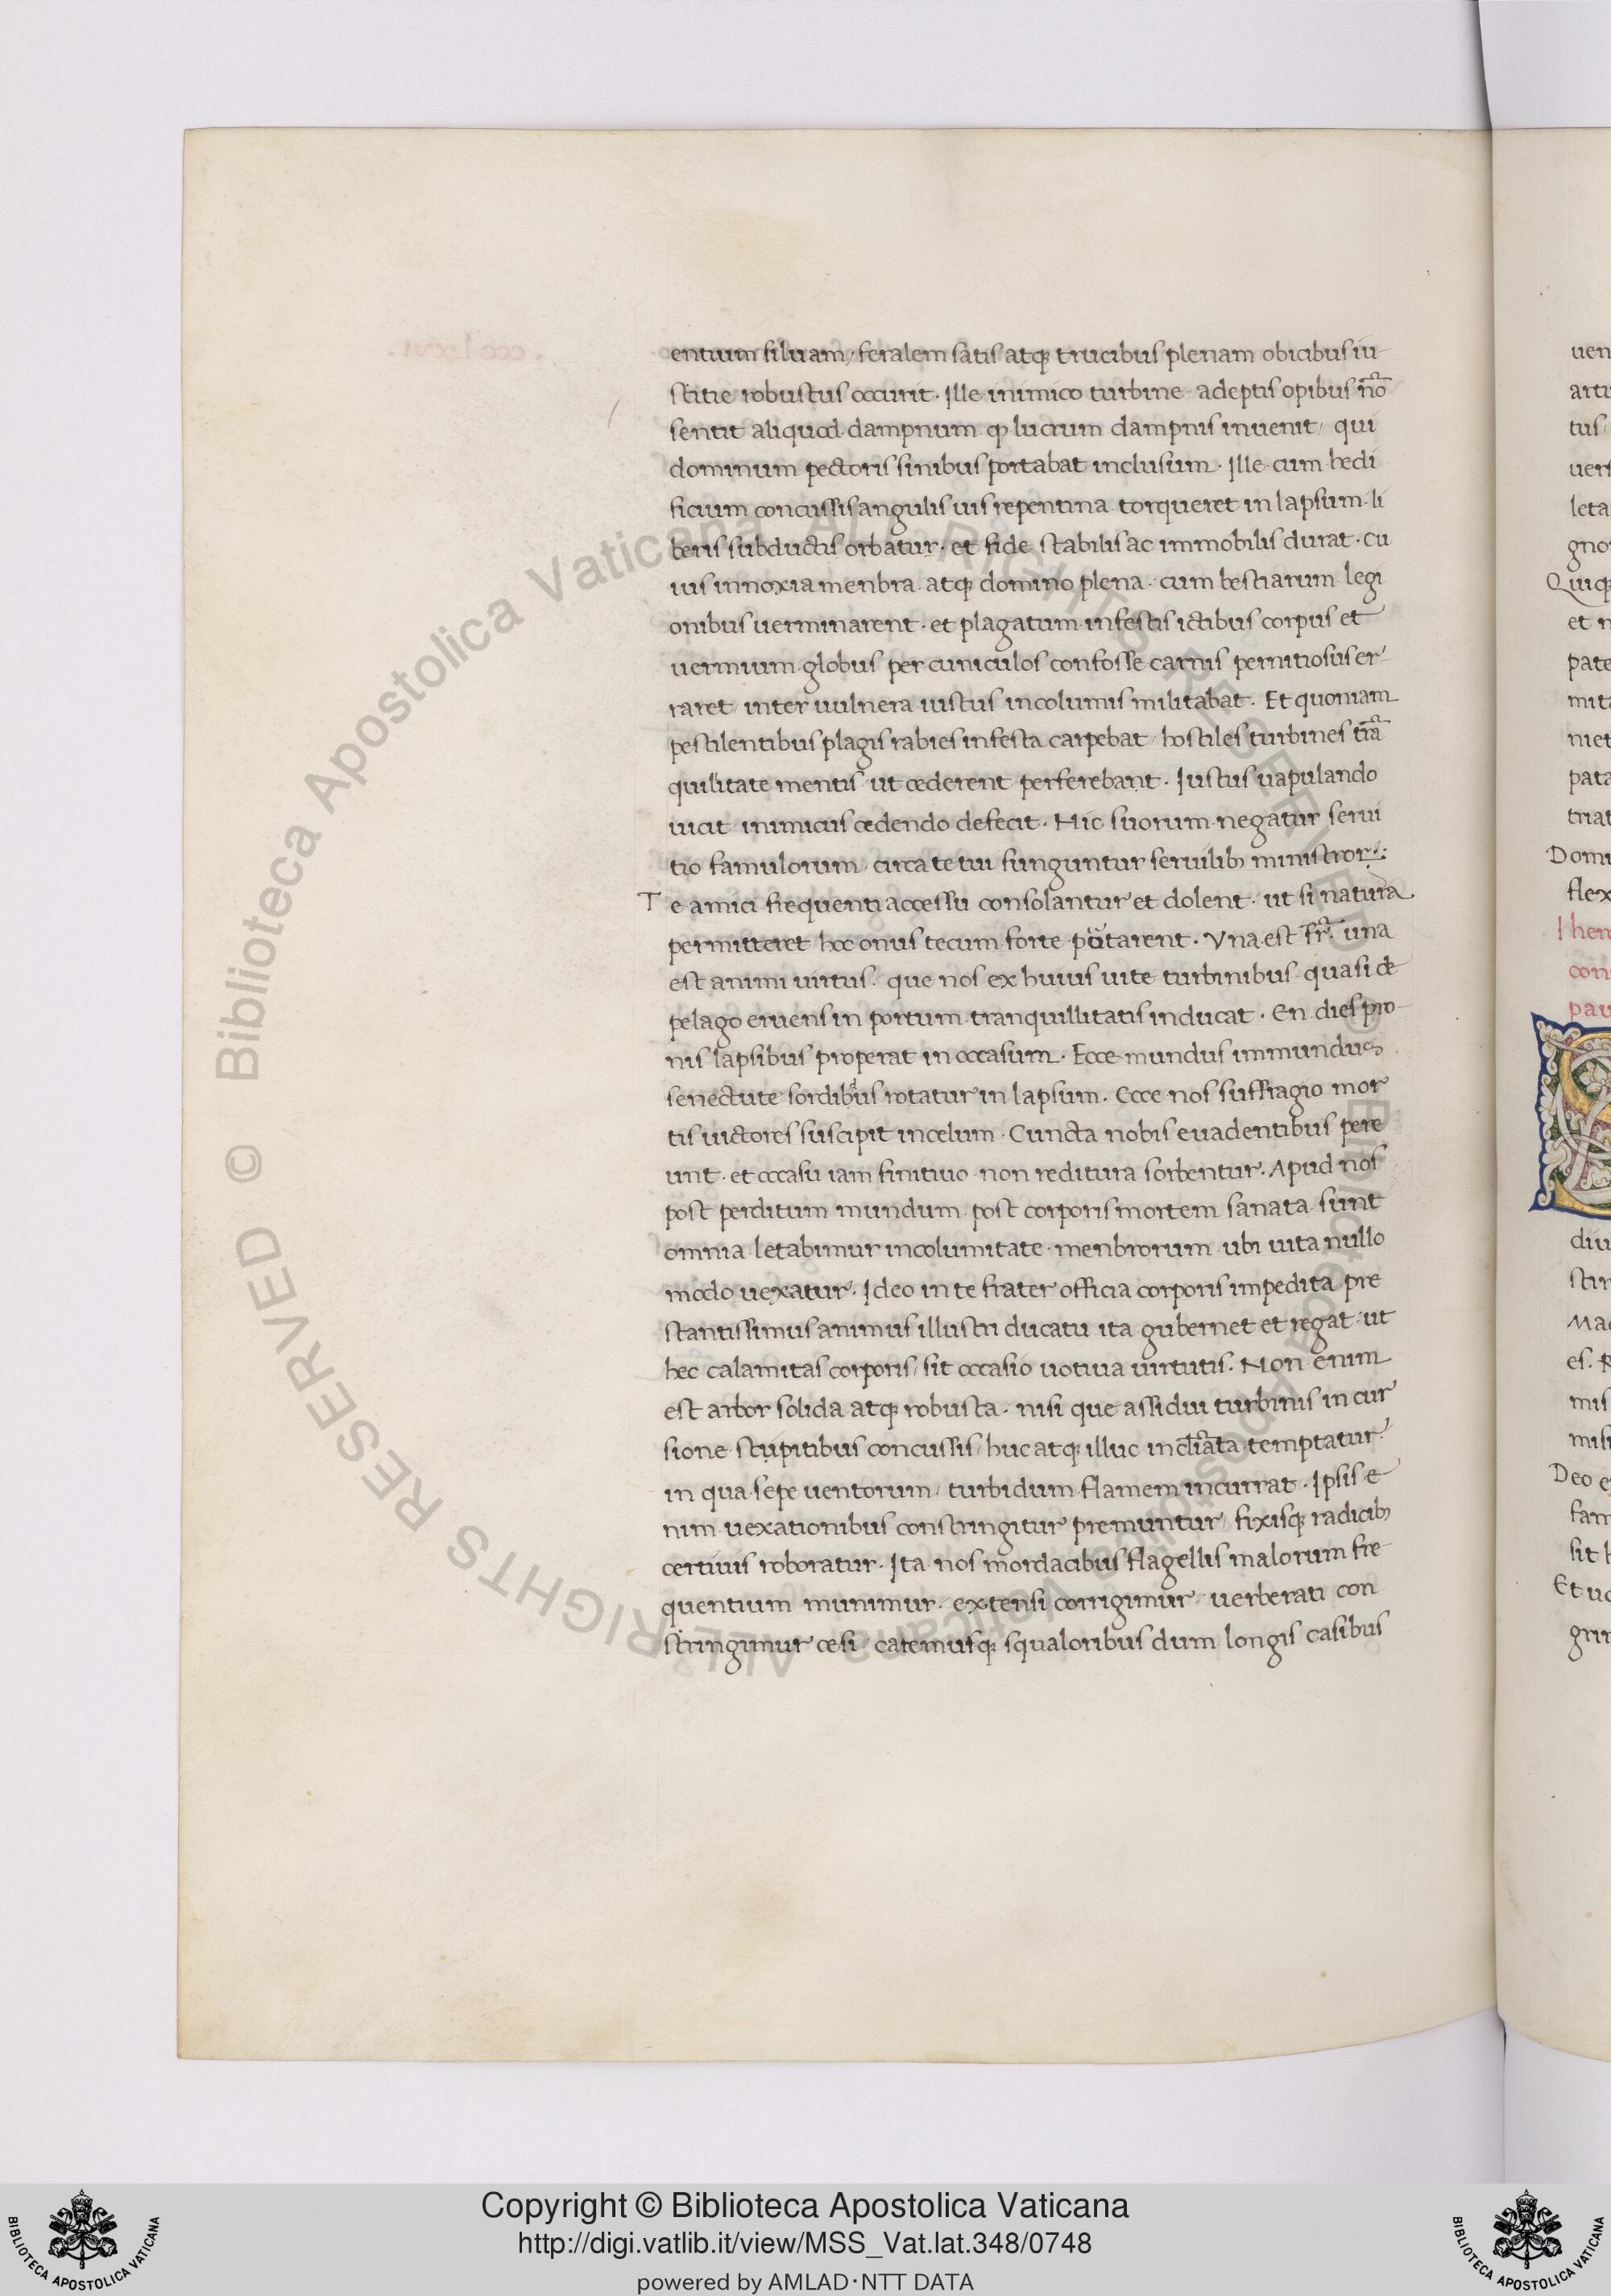 entium siluam, feralem satis atq; trucibus plenam obicibus iu
stitie robustus occurrit. Ille inimico turbine adeptis opibus
sentit aliquod dampnum qͥ lucrum dampnis inuenit, qui
dominum pectoris sinibus portabat inclusum. Ille cum hedi
ficium concussis angulis uis repentina torqueret in lapsum li
beris subductis orbatur. et fide stabilis ac immobilis durat. cu
ius innoxia menbra atq; domino plena. cum bestiarum legi
onibus uerminarent. et plagatum infestis ictibus corpus et
uermium globus per cuniculos confosse carnis pernitiosus er
raret, inter uulnera iustus incolumis militabat. Et quoniam
pestilentibus plagis rabies infesta carpebat, hostiles turbines trã
quillitate mentis ut cederent perferebant. Iustus uapulando
uicit inimicus cedendo defecit. Hic suorum negatur serui
tio famulorum, circa te tui funguntur seruilib; ministror
Te amici frequenti accessu consolantur et dolent. ut si natura
permitteret hoc onus tecum forte una est fr̃. una
est animi uirtus. que nos ex huius uite turbinibus quasi de
pelago eruens in portum tranquillitatis inducat. En dies pro
nis lapsibus properat in occasum. Ecce mundus immundus
senectute sordibus rotatur in lapsum. Ecce nos suffragio mor
tis uictores suscipit in celum. Cuncta nobis euadentibus pere
unt. et occasu iam finitiuo non reditura sorbentur. Apud nos
post perditum mundum post corporis mortem sanata sunt
omnia letabimur incolumitate menbrorum ubi uita nullo
modo uexatur. Ideo in te frater officia corporis impedita pre
stantissimus animus illustri ducatu ita gubernet et regat ut
hec calamitas corporis, sit occasio uotiua uirtutis. Non enim
est arbor solida atq; robusta. nisi que assidui turbinis in cur
sione stipitibus concussis, huc atq; illuc temptatur.
in qua sepe uentorum, turbidum flamem incurrat. Ipsis e
nim uexationibus constringitur premuntur, fixisq; radicib;
certiuis roboratur. Ita nos mordacibus flagellis malorum fre
quentium munimur. extensi corrigimur. uerberati con
stringimur cesi, catemusq; squaloribus dum longis casibus
uen
arti
tus
uers
leta
gno
Quiq;
et n
pate
mit
niet
pata
triat
Domi
flex
hen
con
pau
diu
stin
Mac
es.
mis
misi
Deo e
fam
sit h
Et uo
grin
© Biblioteca Apostolica Vaticana ALL RIGHTS RESERVED
© Biblioteca Apostolica Vaticana ALL RIGHTS RESERVED
BIBLIOTECA APOSTOLICA VATICANA
Copyright © Biblioteca Apostolica Vaticana
http://digi.vatlib.it/view/MSS_Vat.lat.348/0748
powered by AMLAD·NTT DATA
BIBLIOTECA APOSTOLICA VATICANA